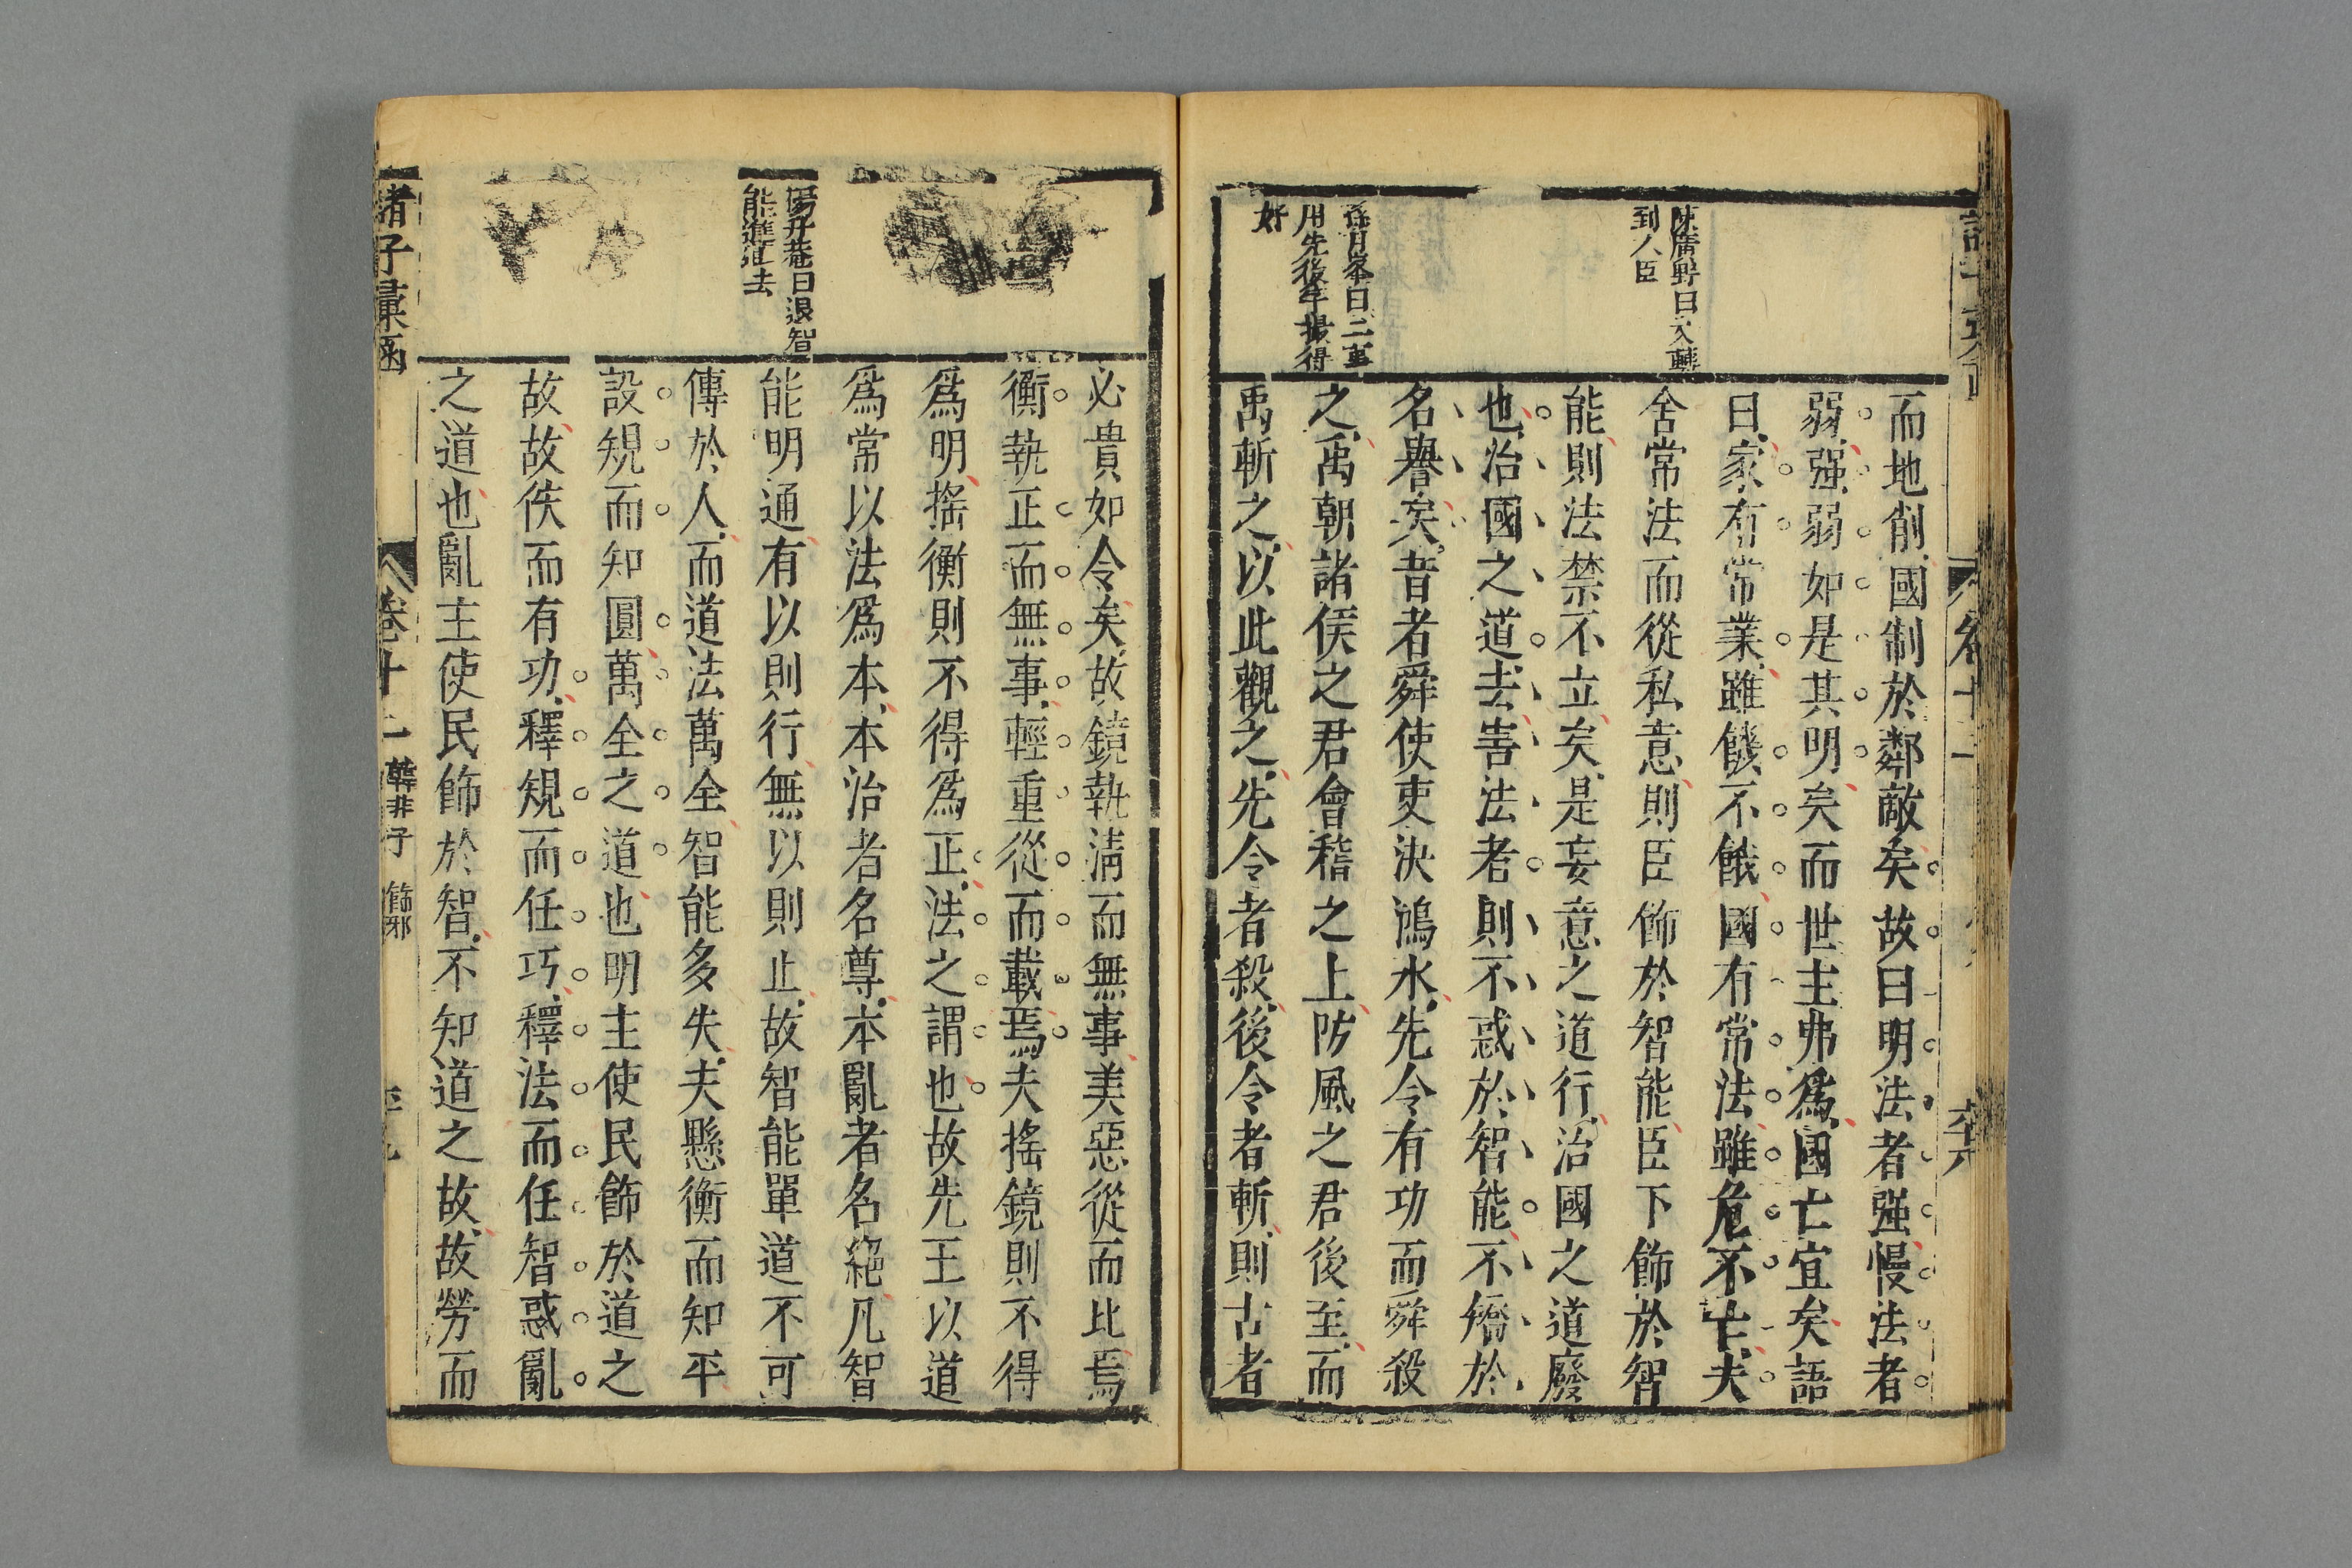 陳廣野曰文轉
到人臣
孫月峯曰二事
用先後字撮得
好
而地削國制於鄰敵矣故曰明法者强慢法者
弱强弱如是其明矣而世主弗爲國亡宜矣語
曰家有常業雖饑不餓國有常法雖危不亡夫
舍常法而從私意則臣飾於智能臣下飾於智
能則法禁不立矣是妄意之道行治國之道廢
也治國之道去害法者則不惑於智能不矯於
名譽矣昔者舜使吏決鴻水先令有功而舜殺
之禹朝諸侯之君會稽之上防風之君後至而
禹斬之以此觀之先令者殺後令者斬則古者
楊升菴曰退智
能進道去
必貴如令矣故鏡執淸而無事美惡從而比焉
衡執正而無事輕重從而載焉夫搖鏡則不得
爲明搖衡則不得爲正法之謂也故先王以道
爲常以法爲本本治者名尊本亂者名絕凡智
能明通有以則行無以則止故智能單道不可
傳於人而道法萬全智能多失夫懸衡而知平
設規而知圓萬全之道也明主使民飾於道之
故故佚而有功釋規而任巧釋法而任智惑亂
之道也亂主使民飾於智不知道之故故勞而
諸子彙函
卷十二 韓非子 飾邪